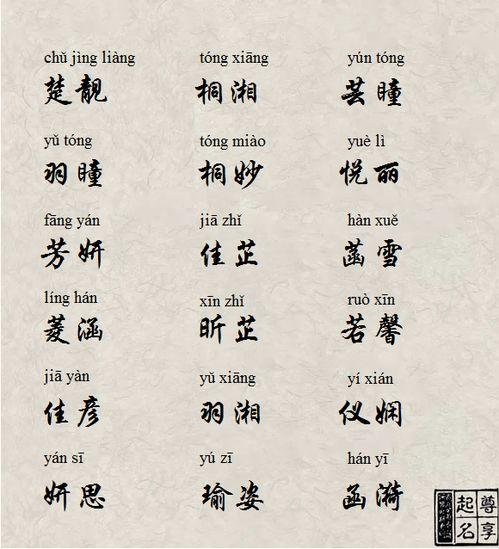 chǔ jìng liàng tóng xiāng yún tóng
楚靓 桐湘 芸瞳
yǔ tóng tóng miào yuè lì
羽瞳 桐妙 悦丽
fāng yán jiā zhǐ hàn xuě
芳妍 佳芷 菡雪
líng hán xīn zhǐ ruò xīn
菱涵 昕芷 若馨
jiā yàn yǔ xiāng yí xián
佳彦 羽湘 仪娴
yán sī yú zī hán yī
妍思 瑜姿 函漪
尊享
起名